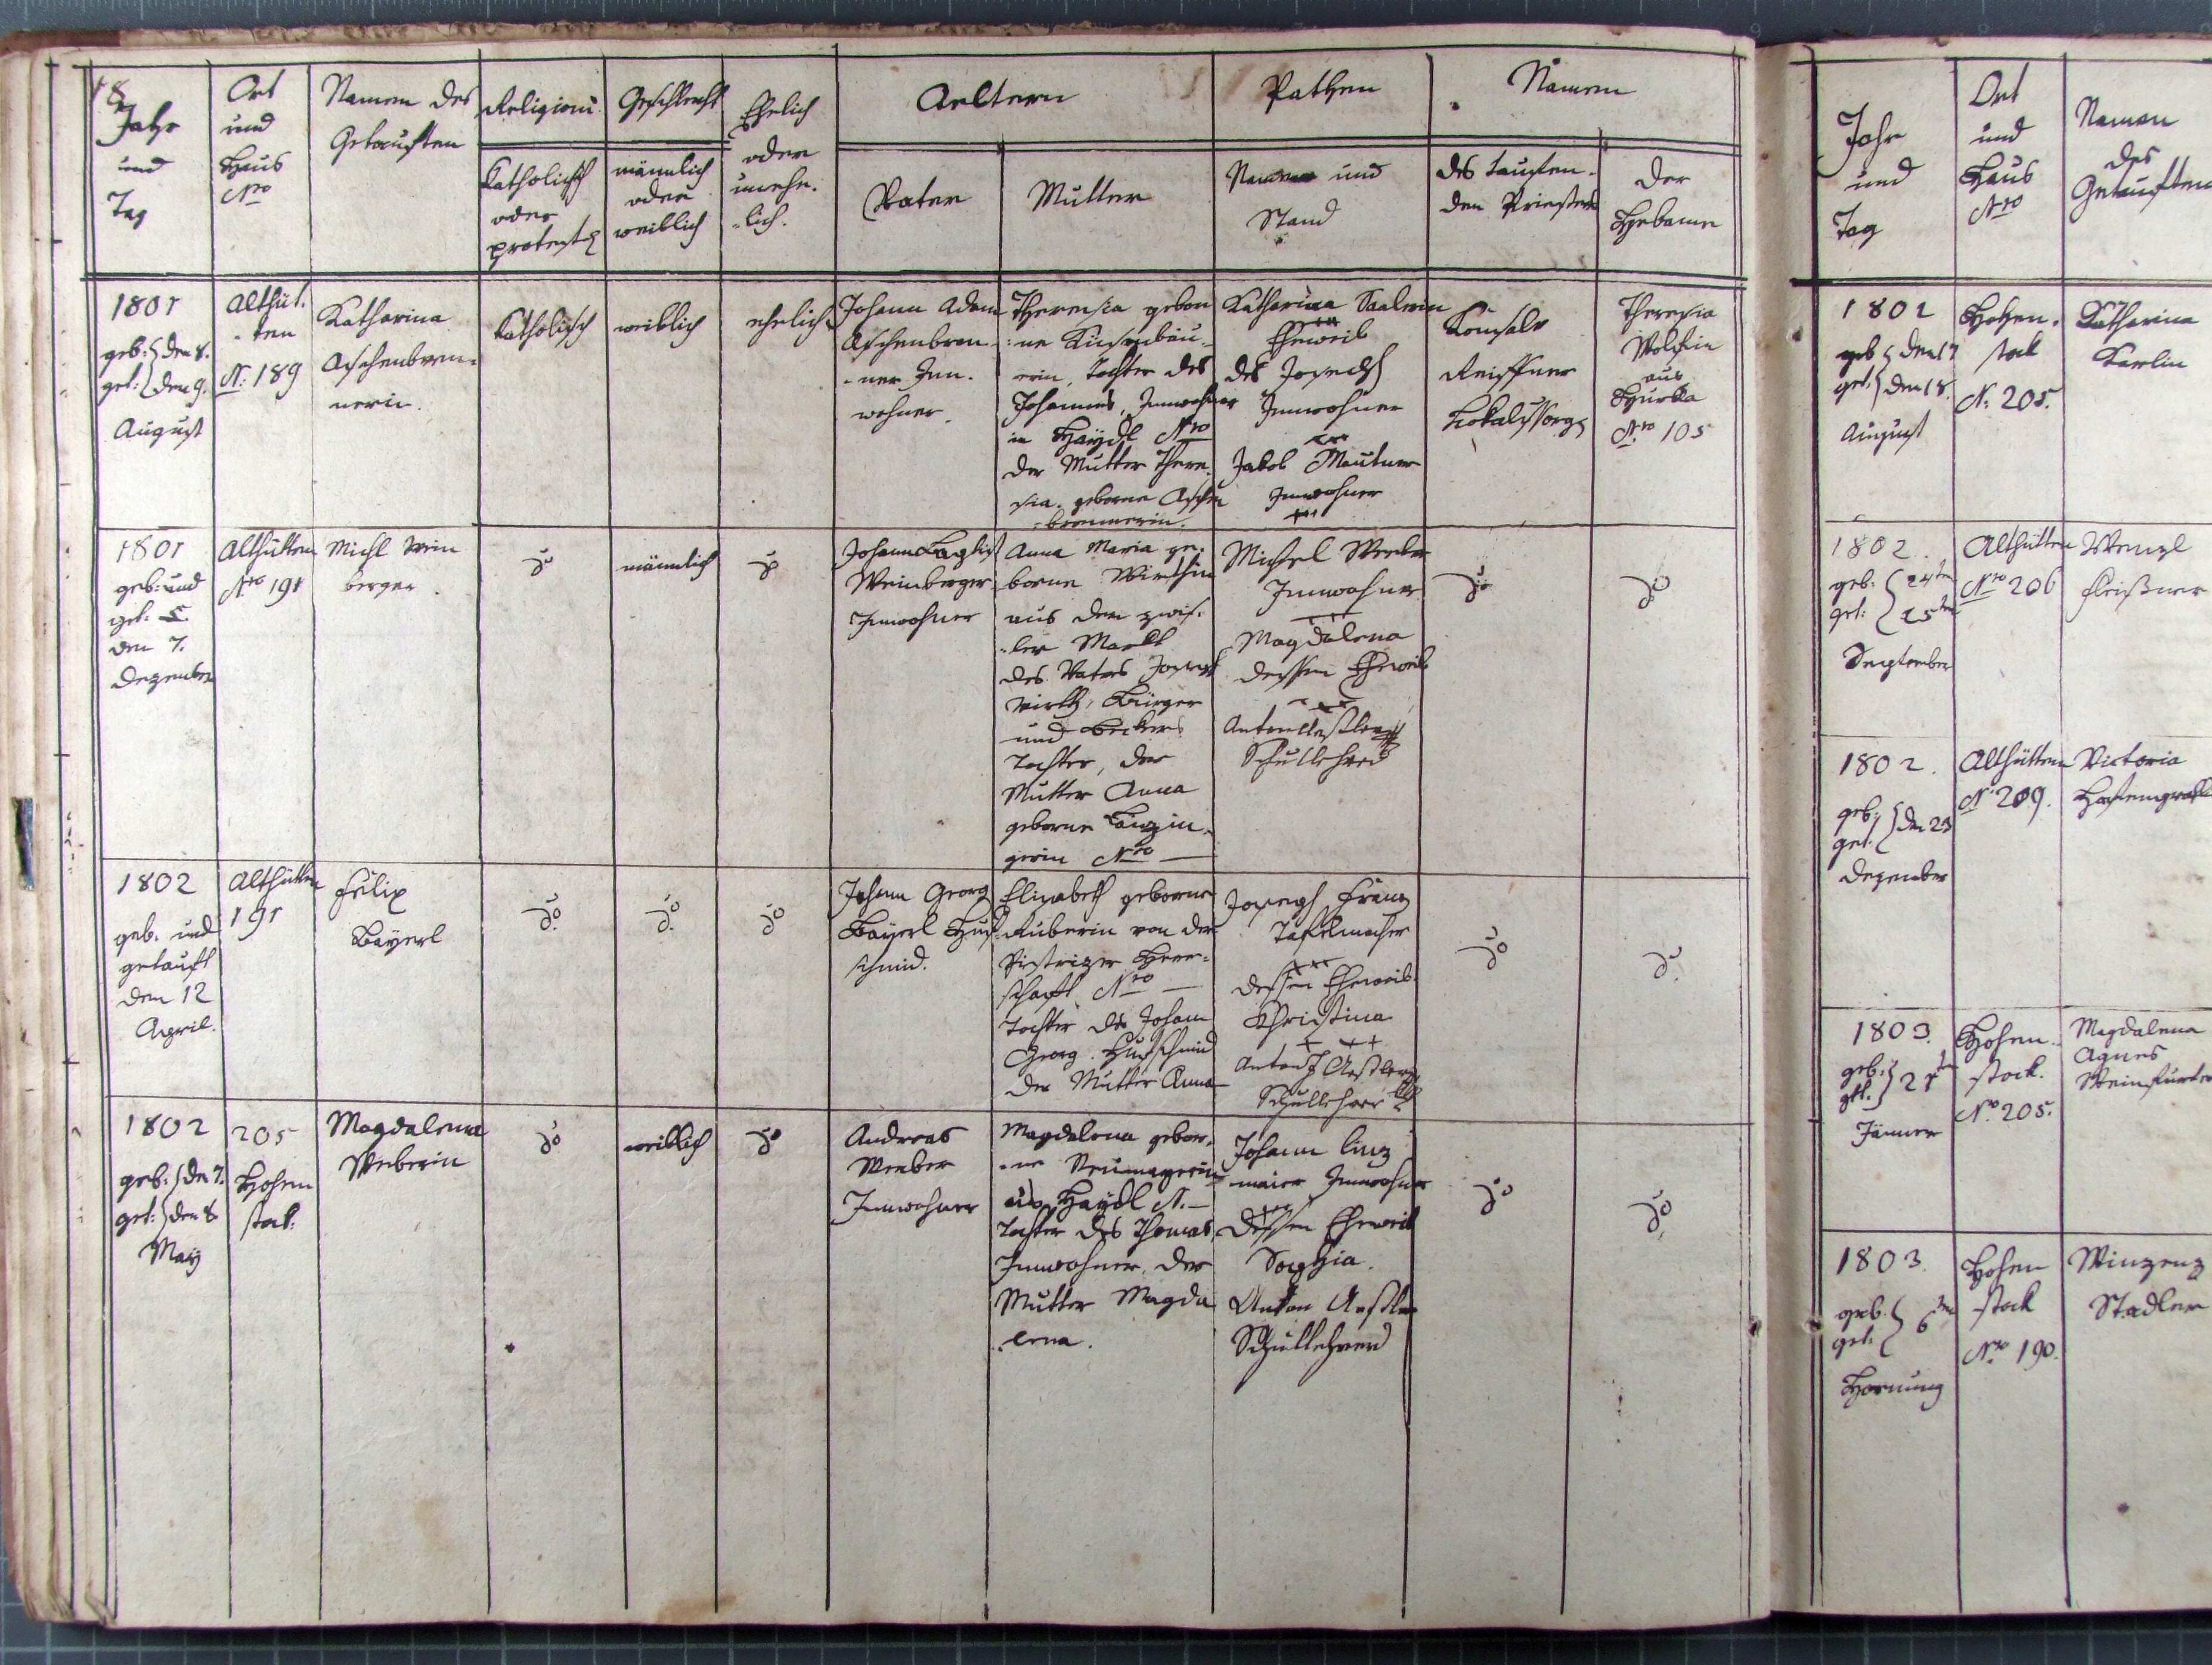 18
Jahr
und
Tag
Ort
und
Haus
Nro
Namen des
Getauften
Religion
Katholisch
oder
protest
Geschlecht
männlich
oder
weiblich
Ehelich
oder
unehe-
-lich.
Aeltern
Vater
Mutter
Pathen
Namen und
Stand
Namen
des taufen-
den Priesters
der
Hebame
1801
geb: den 8.
get: den 9.
August
Althüt-
-ten
N: 189
Katharina
Aschenbren-
nerin.
Katholisch
weiblich
ehelich
Johann Adam
Aschenbren-
-ner Inn-
wohner
Theresia gebor
-ne
erin, Tochter des
Johannes, Innwohner
in Haydl Nro
der Mutter There
sia geborne Aschen
brennerin.
Katharina
Eheweib
des Joseph
Innwohner
xxx
Jakob
Innwohner
+++
Konsalv
Reiffner
Theresia
aus
Hurka
Nro 105
1801
geb: und
get:
den 7.
Dezember
Althütten
Nro 191
Michl Wein
berger
do
männlich
do
Johann Baptist
Weinberger
Innwohner
Anna Maria ge-
borne Wirthin
aus dem zwis-
-ler Markt
des Vaters Joseph
Wirth, Bürger
und Beckers
Tochter, der
Mutter Anna
geborne
gerin Nro —
Michel Weeber
Innwohner
Magdalena
dessen Eheweib
xxx
Anton
Schullehrer
do
do
1802
geb. und
getauft
den 12
April.
Althütten
191
Felix
Bayerl
do
do
do
Johann Georg
Bayerl Huf-
schmid.
Elisabeth geborne
Ruberin von der
Herr-
schaft Nro —
Tochter des Johann
Georg Hufschmid
der Mutter Anna
Joseph Franz
Tafelmacher
xxx
dessen Eheweib
Christina
+ + +
Anton
Schullehrer
do
do
1802
geb: den 7.
get: den 8
May
205
Hohen
stok:
Magdalena
Weberin
do
weiblich
do
Andreas
Weeber
Innwohner
Magdalena gebor-
-ne Neumayerin
aus Haydl N. —
Tochter des Thomas
Innwohner, der
Mutter Magda
-lena.
Johann Linz
maier Innwohner
xxx
dessen Eheweib
Sophia.
Anton
Schullehrer
do
do
Jahr
und
Tag
Ort
und
Haus
Nro
Namen
des
Getauften
1802
geb den 17
get: den 18.
August
Hohen-
stok
N: 205.
Katharina
1802.
geb: 24ten
get: 25ten
September
Althütten
Nro 206
Wenzl
Fleißner
1802.
geb:
get. den 23
Dezember
Althütten
N: 209.
Victoria
1803.
geb:
get. 21ten
Jänner
Hohen-
stock.
Nro 205.
Magdalena
Agnes
Weinfurter
1803.
geb.
get: 6ten
Hornung
Hohen
stock
Nro 190.
Winzenz
Stadler